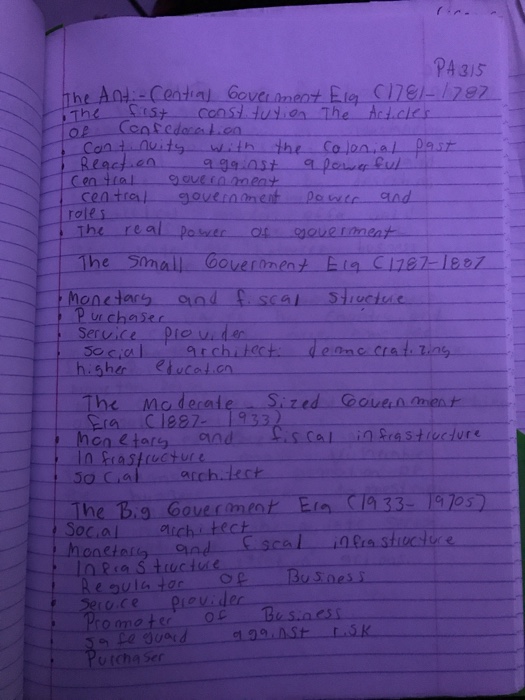 PA315
The Anti-Central Government Era (1781-1787
The fist constitution The Acticles
OF Confedoration
Continuity with the Colonial Past
Reaction against a powerful
Central government
central government power and
roles
The real power of gouerment
The Small Goverment Era (1787-1887
Monetary and fiscal Structure
Purchaser
Service provider
Social architect: democratizing
higher education
The Moderate-Sized Government
Era (1887-1933)
Monetary and fiscal infrastructure
Infrastructure
social architect
The Big Goverment Era (1933-1970s)
Social architect
Monetary and fiscal infrastructure
Infrastructure
Regulator OF Business
Service provider
Promoter OF Business
safeguard against risk
Purchaser